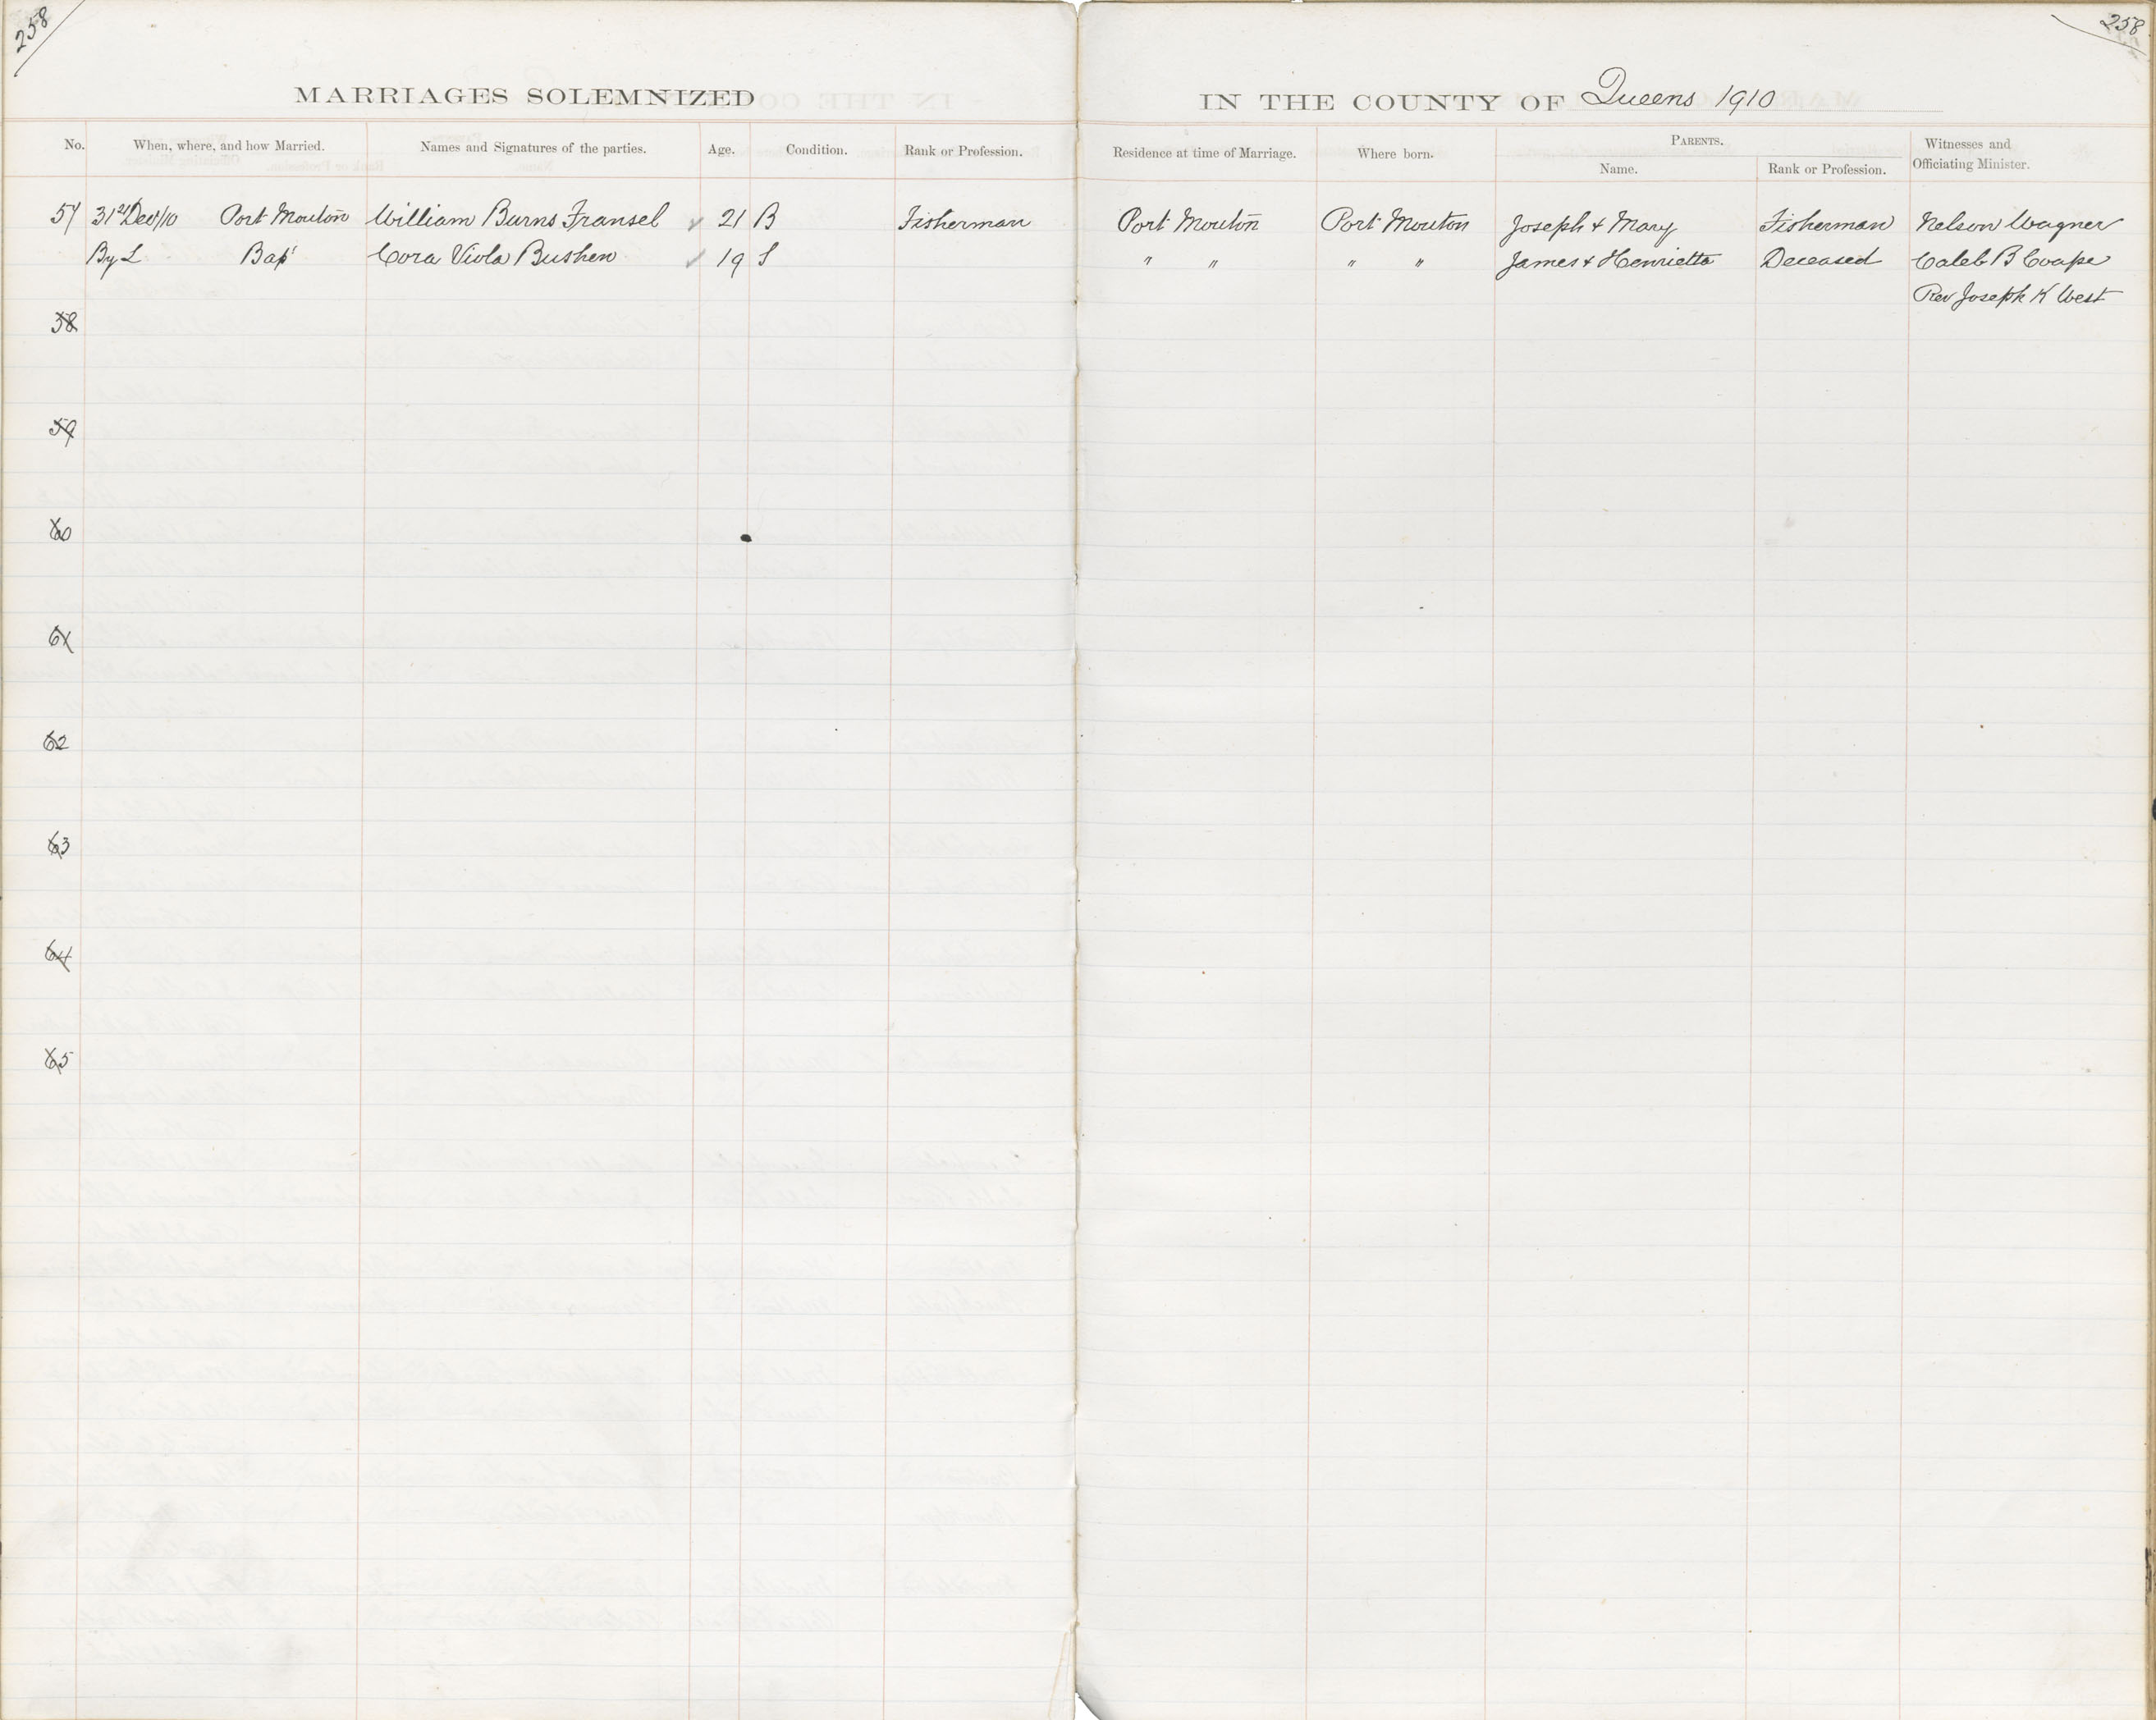 258
258
MARRIAGES SOLEMNIZED IN THE COUNTY OF Queens 1910
No. When, where, and how Married. Names and Signatures of the parties. Age. Condition. Rank or Profession. Residence at time of Marriage. Where born. PARENTS. Name. Rank or Profession. Witnesses and Officiating Minister.
57 31st Dec/10 Port Mouton William Burns Fransel 21 B Fisherman Port Mouton Port Mouton Joseph + Mary Fisherman Nelson Wagner
By L Bap' Cora Viola Bushen 19 S " " " " James + Henrietta Deceased Caleb B Coape
Rev Joseph K West
58
59
60
61
62
63
64
65